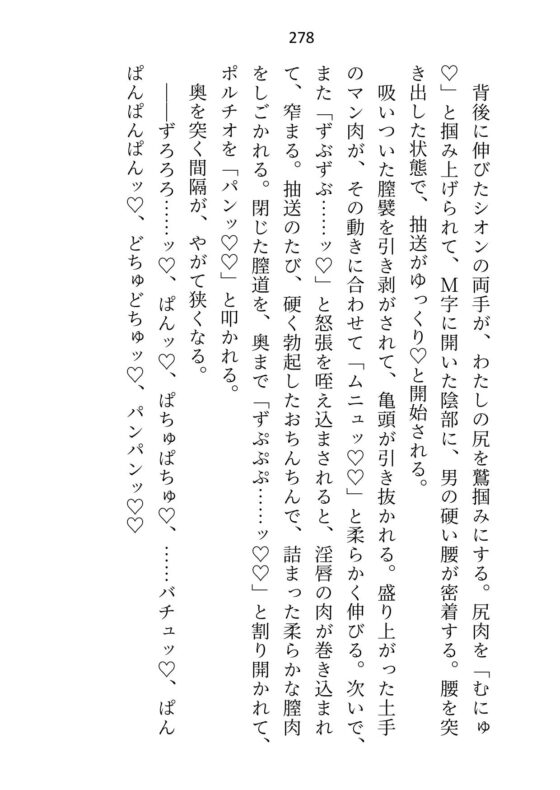 278
背後に伸びたシオンの両手が、わたしの尻を鷲掴みにする。尻肉を「むにゅ
♡」と掴み上げられて、M字に開いた陰部に、男の硬い腰が密着する。腰を突
き出した状態で、抽送がゆっくり♡と開始される。
吸いついた膣襞を引き剥がされて、亀頭が引き抜かれる。盛り上がった土手
のマン肉が、その動きに合わせて「ムニュッ♡♡」と柔らかく伸びる。次いで、
また「ずぶずぶ……ッ♡」と怒張を咥え込まされると、淫唇の肉が巻き込まれ
て、窄まる。抽送のたび、硬く勃起したおちんちんで、詰まった柔らかな膣肉
をしごかれる。閉じた膣道を、奥まで「ずぷぷぷ……ッ♡♡」と割り開かれて、
ポルチオを「パンッ♡♡」と叩かれる。
奥を突く間隔が、やがて狭くなる。
――ずろろろ……ッ♡、ぱんッ♡、ぱちゅぱちゅ♡、……バチュッ♡、ぱん
ぱんぱんぱんッ♡、どちゅどちゅッ♡、パンパンッ♡♡